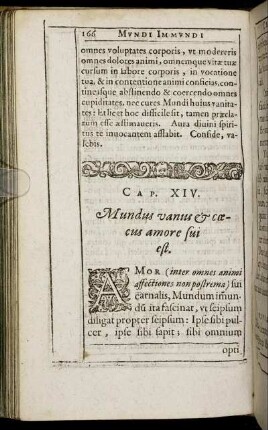 166 MVNDI IMMVNDI
omnes voluptates corporis, vt modereris
omnes dolores animi, omnemque vitæ tuæ
cursum in labore corporis, in vocatione
tua, & in contentione animi conficias, con-
tinesque abstinendo & coercendo omnes
cupiditates, nec cures Mundi huius vanita-
tes: Id licet hoc difficile sit, tamen præcla-
tum esse æstimaueris. Aura diuini spiri-
tus te inuocantem afflabit. Confide, va-
lebis.
CAP. XIV.
Mundus vanus & cæ-
cus amore sui
est.
AMOR (inter omnes animi
affectiones non postrema) sui
carnalis, Mundum immun-
dū ita fascinat, vt seipsum
diligat propter seipsum: Ipse sibi pul-
cer, ipse sibi sapit; sibi omnium
opti